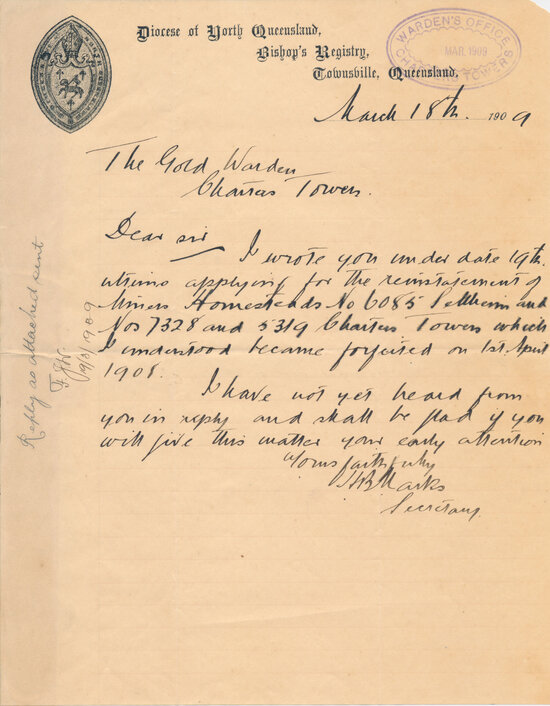 Diocese of North Queensland,
Bishop's Registry,
Townsville, Queensland,
WARDEN'S OFFICE
MAR. 1909
CHARTERS TOWERS
March 18th. 1909
The Gold Warden
Charters Towers.
Dear sir
I wrote you under date 19th.
ultimo applying for the reinstatement of
Miners Homesteads No 6085 Sellheim and
Nos 7328 and 5319 Charters Towers which
I understood became forfeited on 1st April
1908.
I have not yet heard from
you in reply and shall be glad if you
will give this matter your early attention
Yours faithfully
Marks
Secretary.
Reply as attached sent
19/3/1909